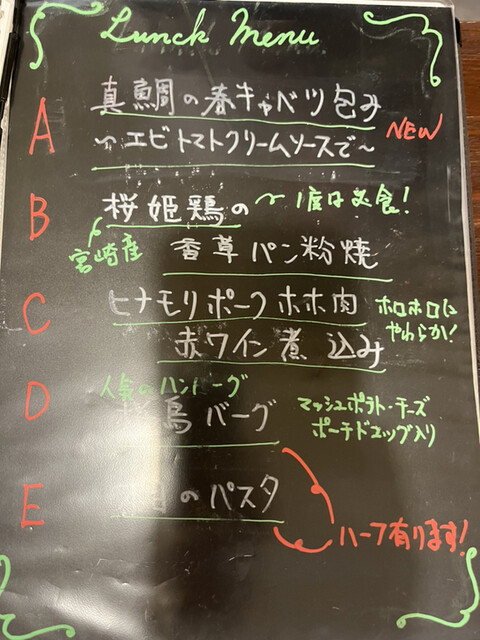 Lunch Menu
A 真鯛の春キャベツ包み
~エビトマトクリームソースで~ NEW
B 桜姫鶏の ~1度は必食!
宮崎産 香草パン粉焼
C ヒナモリポークホホ肉 ホロホロに
赤ワイン煮込み やわらか!
人気のハンバーグ
D 鳥バーグ マッシュポテト・チーズ
ポーチドエッグ入り
E のパスタ
ハーフ有ります!